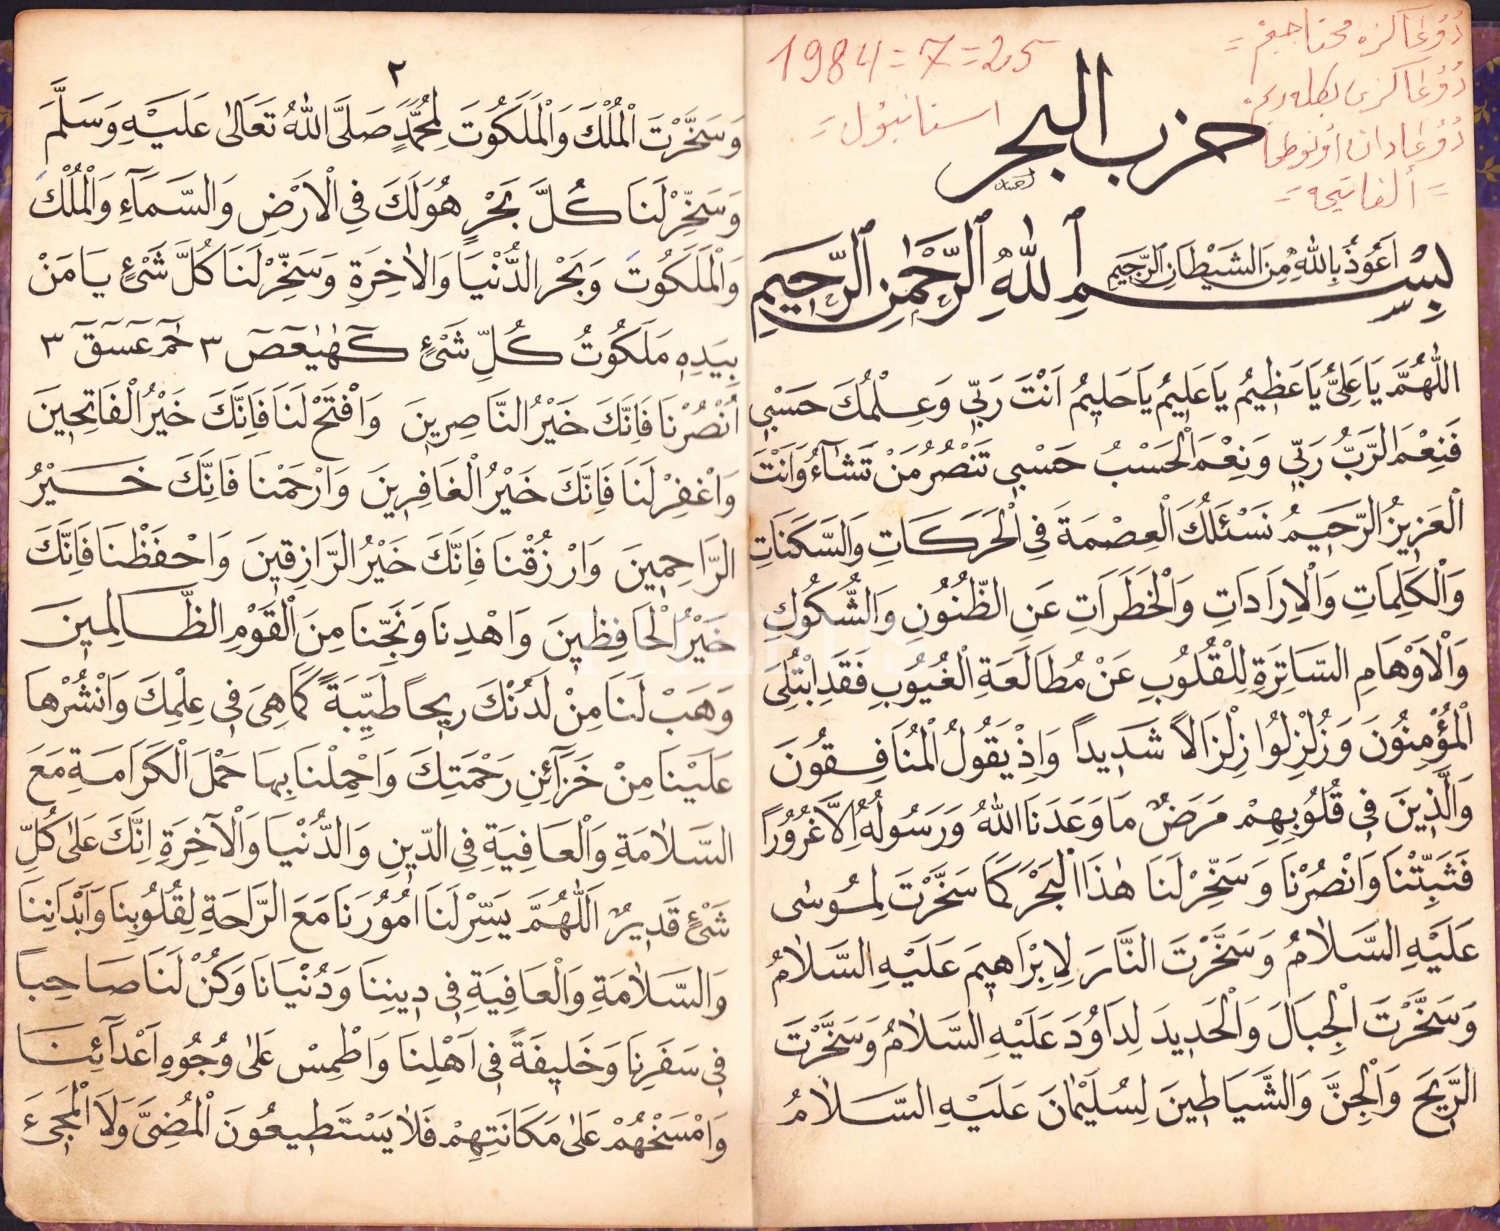 1984=7=25
استانبول =
دؤعاكزه محتاجيم =
دؤعاكزى بكله ريم
دؤعادان اونوطما
= ألفاتيحه =
حزب البحر
اَعُوذُ بِاللهِ مِنَ الشَّيْطَانِ الرَّجِيمِ
بِسْمِ اللهِ الرَّحْمٰنِ الرَّحِيمِ
اَللّٰهُمَّ يَا عَلِىُّ يَا عَظِيمُ يَا عَلِيمُ يَا حَلِيمُ اَنْتَ رَبِّى وَعِلْمُكَ حَسْبِى
فَنِعْمَ الرَّبُّ رَبِّى وَنِعْمَ الْحَسْبُ حَسْبِى تَنْصُرُ مَنْ تَشَاءُ وَاَنْتَ
الْعَزِيزُ الرَّحِيمُ نَسْئَلُكَ الْعِصْمَةَ فِى الْحَرَكَاتِ وَالسَّكَنَاتِ
وَالْكَلِمَاتِ وَالْاِرَادَاتِ وَالْخَطَرَاتِ عَنِ الظُّنُونِ وَالشُّكُوكِ
وَالْاَوْهَامِ السَّاتِرَةِ لِلْقُلُوبِ عَنْ مُطَالَعَةِ الْغُيُوبِ فَقَدِ ابْتُلِىَ
الْمُؤْمِنُونَ وَزُلْزِلُوا زِلْزَالاً شَدِيداً وَاِذْ يَقُولُ الْمُنَافِقُونَ
وَالَّذِينَ فِى قُلُوبِهِمْ مَرَضٌ مَا وَعَدَنَا اللهُ وَرَسُولُهُ اِلاَّ غُرُوراً
فَثَبِّتْنَا وَانْصُرْنَا وَسَخِّرْ لَنَا هٰذَا الْبَحْرَ كَمَا سَخَّرْتَ لِمُوسٰى
عَلَيْهِ السَّلاٰمُ وَسَخَّرْتَ النَّارَ لِاِبْرَاهِيمَ عَلَيْهِ السَّلاٰمُ
وَسَخَّرْتَ الْجِبَالَ وَالْحَدِيدَ لِدَاوُدَ عَلَيْهِ السَّلاٰمُ وَسَخَّرْتَ
الرِّيحَ وَالْجِنَّ وَالشَّيَاطِينَ لِسُلَيْمٰنَ عَلَيْهِ السَّلاٰمُ
٢
وَسَخَّرْتَ الْمُلْكَ وَالْمَلَكُوتَ لِمُحَمَّدٍ صَلَّى اللهُ تَعَالٰى عَلَيْهِ وَسَلَّمَ
وَسَخِّرْ لَنَا كُلَّ بَحْرٍ هُوَ لَكَ فِى الْاَرْضِ وَالسَّمَآءِ وَالْمُلْكَ
وَالْمَلَكُوتَ وَبَحْرَ الدُّنْيَا وَالْاٰخِرَةِ وَسَخِّرْ لَنَا كُلَّ شَىْءٍ يَا مَنْ
بِيَدِهِ مَلَكُوتُ كُلِّ شَىْءٍ كٓهٰيٰعٓصٓ ٣ حٰمٓ عٓسٓقٓ ٣
اُنْصُرْنَا فَاِنَّكَ خَيْرُ النَّاصِرِينَ وَافْتَحْ لَنَا فَاِنَّكَ خَيْرُ الْفَاتِحِينَ
وَاغْفِرْ لَنَا فَاِنَّكَ خَيْرُ الْغَافِرِينَ وَارْحَمْنَا فَاِنَّكَ خَيْرُ
الرَّاحِمِينَ وَارْزُقْنَا فَاِنَّكَ خَيْرُ الرَّازِقِينَ وَاحْفَظْنَا فَاِنَّكَ
خَيْرُ الْحَافِظِينَ وَاهْدِنَا وَنَجِّنَا مِنَ الْقَوْمِ الظَّالِمِينَ
وَهَبْ لَنَا مِنْ لَدُنْكَ رِيحاً طَيِّبَةً كَمَا هِىَ فِى عِلْمِكَ وَانْشُرْهَا
عَلَيْنَا مِنْ خَزَآئِنِ رَحْمَتِكَ وَاحْمِلْنَا بِهَا حَمْلَ الْكَرَامَةِ مَعَ
السَّلاٰمَةِ وَالْعَافِيَةِ فِى الدِّينِ وَالدُّنْيَا وَالْآخِرَةِ اِنَّكَ عَلٰى كُلِّ
شَىْءٍ قَدِيرٌ اَللّٰهُمَّ يَسِّرْ لَنَا اُمُورَنَا مَعَ الرَّاحَةِ لِقُلُوبِنَا وَاَبْدَانِنَا
وَالسَّلاٰمَةِ وَالْعَافِيَةِ فِى دِينِنَا وَدُنْيَانَا وَكُنْ لَنَا صَاحِباً
فِى سَفَرِنَا وَخَلِيفَةً فِى اَهْلِنَا وَاطْمِسْ عَلٰى وُجُوهِ اَعْدَآئِنَا
وَامْسَخْهُمْ عَلٰى مَكَانَتِهِمْ فَلاٰ يَسْتَطِيعُونَ الْمُضِىَّ وَلَا الْمَجِىءَ